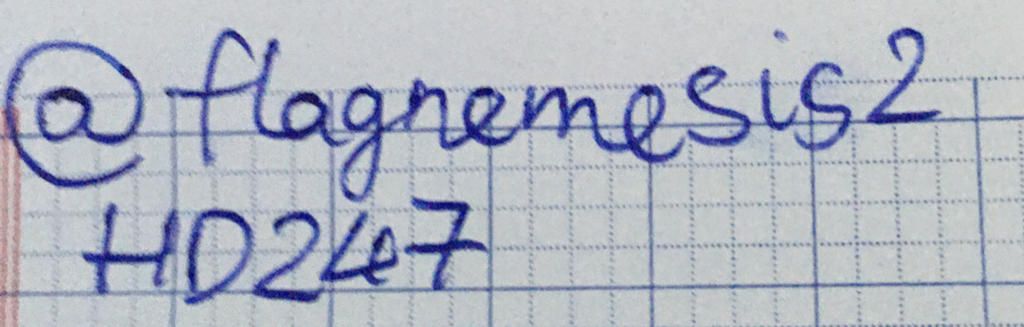 @flagnemesis2
HD247